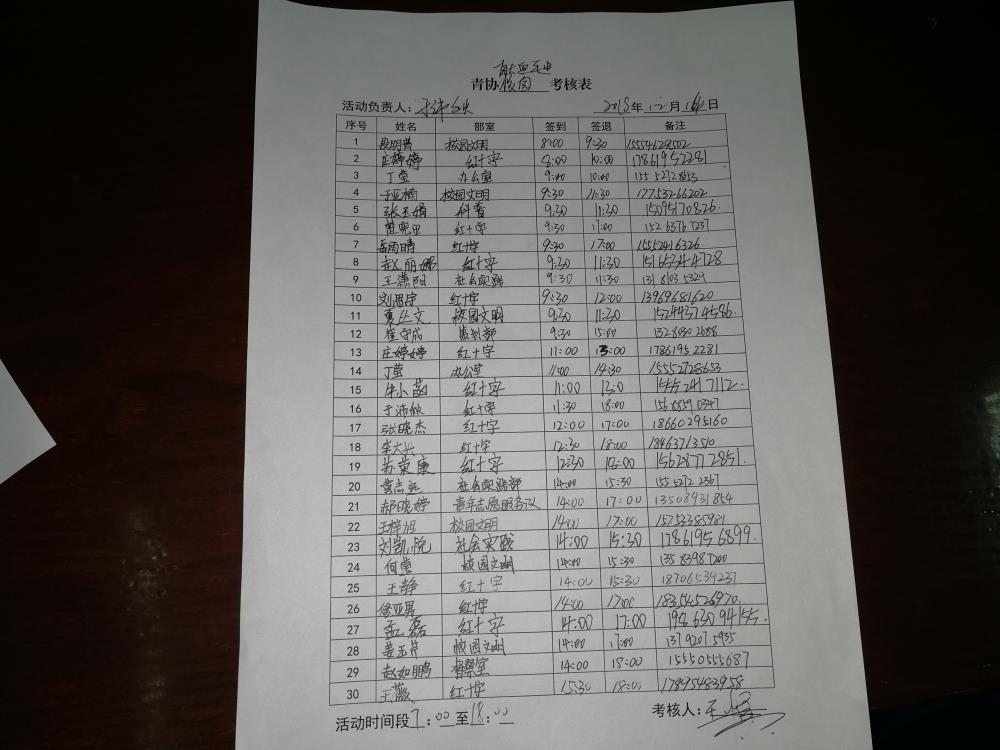 献血毛也
青协 校园 考核表
活动负责人: 年 月 日
序号 姓名 部室 签到 签退 备注
1 校园文明 8:00 9:30 15554629502
2 庄婷婷 红十字 8:00 10:00 17861952281
3 丁莹 办公室 9:00 10:00 155 5272 8653
4 于亚楠 校园文明 9:30 11:30 17753266202
5 张玉娟 科普 9:30 11:30 15095170826.
6 红十字 9:30 17:00 152 6376 7237
7 岳雨晴 红十字 9:30 17:00 15552416326.
8 赵丽娜 红十字 9:30 11:30 15165344728
9 王潇阳 社会实践 9:30 11:30 131 8103 5329
10 刘思宇 红十字 9:30 12:00 13969681620
11 夏丛文 校园文明 9:30 11:30 15244374586.
12 崔守成 9:30 15:00 132 8030 2688
13 庄婷婷 红十字 11:00 13:00 17861952281
14 丁莹 办公室 11:00 14:30 15552728653
15 牛小菡 红十字 11:00 13:0 15552417112.
16 于沛欣 红十字 11:30 18:00 156 8859 0347
17 张晓杰 红十字 12:00 17:00 18660295160
18 李大兴 红十字 12:30 18:00 18463713510
19 苏荣康 红十字 12:30 18:00 15628772851.
20 黄志远 社会实践部 14:00 15:30 155 5272 2367
21 郝晓婷 青年志愿服务队 14:00 17:00 13508931854
22 王梓旭 校园文明 14:00 17:00 15753385981
23 刘凯悦 社会实践 14:00 15:30 17861956899.
24 何莹 校园文明 14:00 15:30 135 8398 7200
25 王静 红十字 14:00 15:30 18706534237
26 修亚男 红十字 14:00 17:00 18354526970.
27 孟磊 红十字 14:00 17:00 198 630 94155.
28 姜玉芹 校园文明 14:00 17:00 137 9207 5935
29 赵如鹏 督察室 14:00 18:00 15550555687
30 王薇 红十字 15:30 18:00 17895483958
活动时间段 7:00 至 18:00 考核人: 王